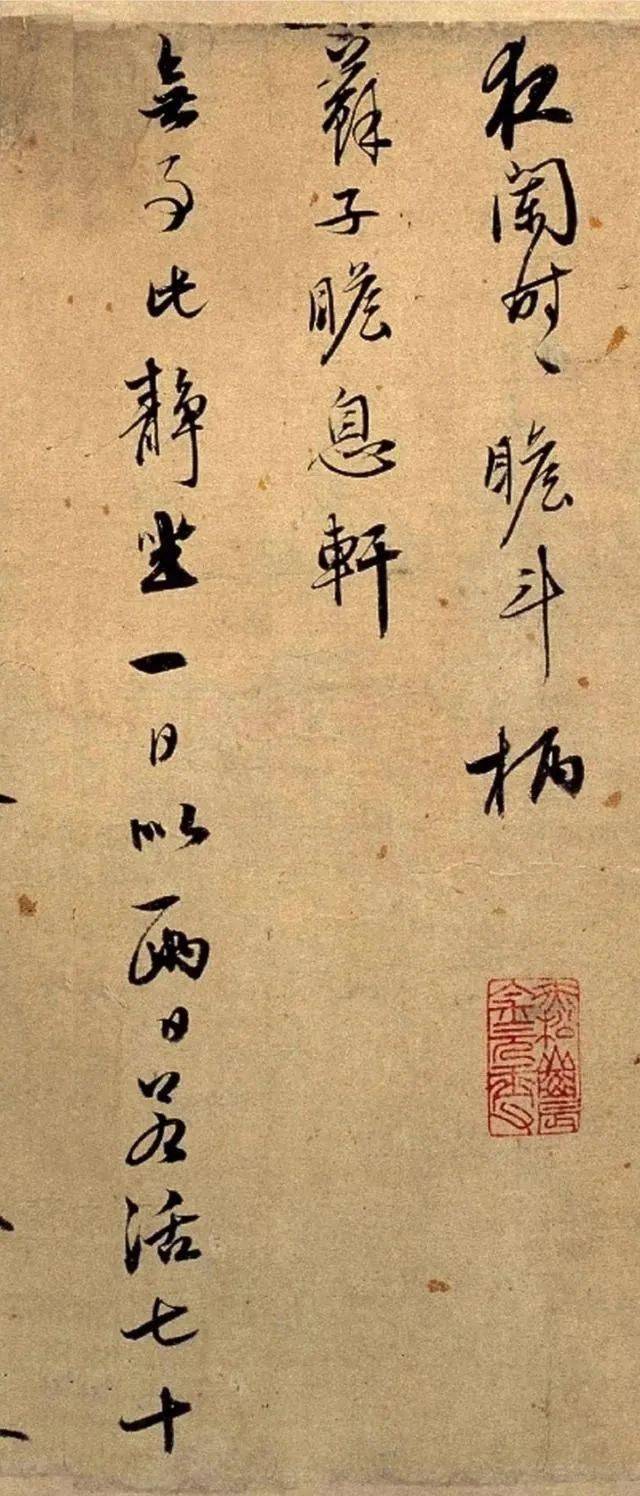 夜闌時〻瞻斗柄
蘇子瞻息軒
無事此靜坐一日似兩日若活七十